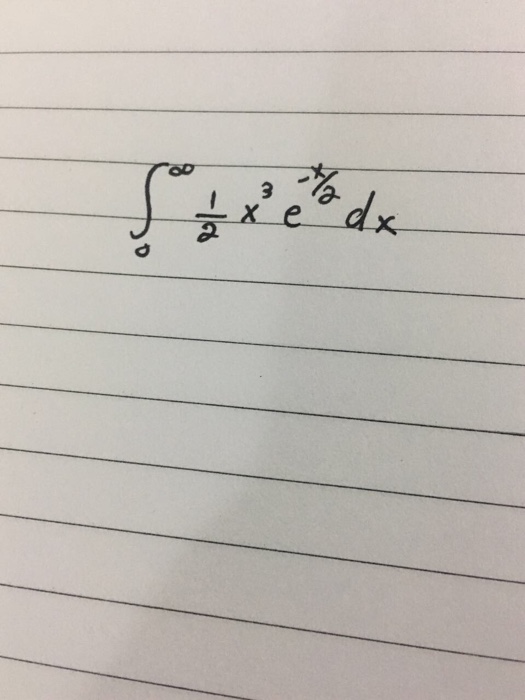 ∫₀^∞ 1/2 x³ e^(-x/2) dx